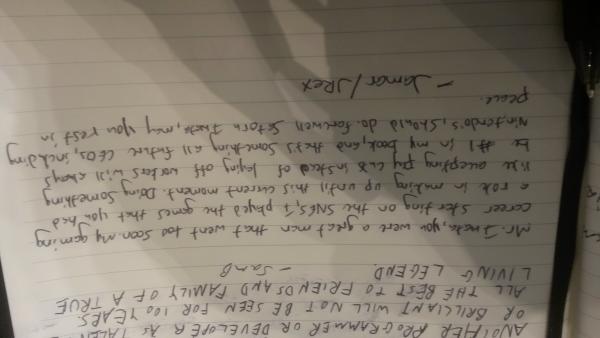 ANOTHER PROGRAMMER OR DEVELOPER AS TALEN
OR BRILLIANT WILL NOT BE SEEN FOR 100 YEARS.
ALL THE BEST TO FRIENDS AND FAMILY OF A TRUE
LIVING LEGEND. - Sam B
Mr. Iwata, you were a great man that went too soon. My gaming
career starting on the SNES, I played the games that you had
a role in making up until this current moment. Doing something
like accepting pay cuts instead of laying off workers will always
be #1 in my book, and that's something all future CEOs, including
Nintendo's, should do. Farewell Satoru Iwata, may you rest in
peace.
- Jamar/JRex